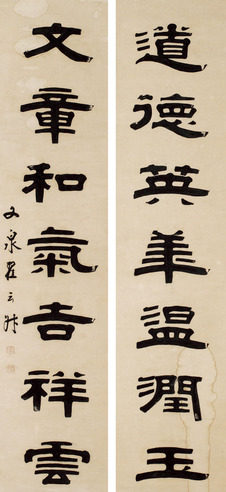 道德英華温潤玉
文章和氣吉祥雲
文泉翟云升